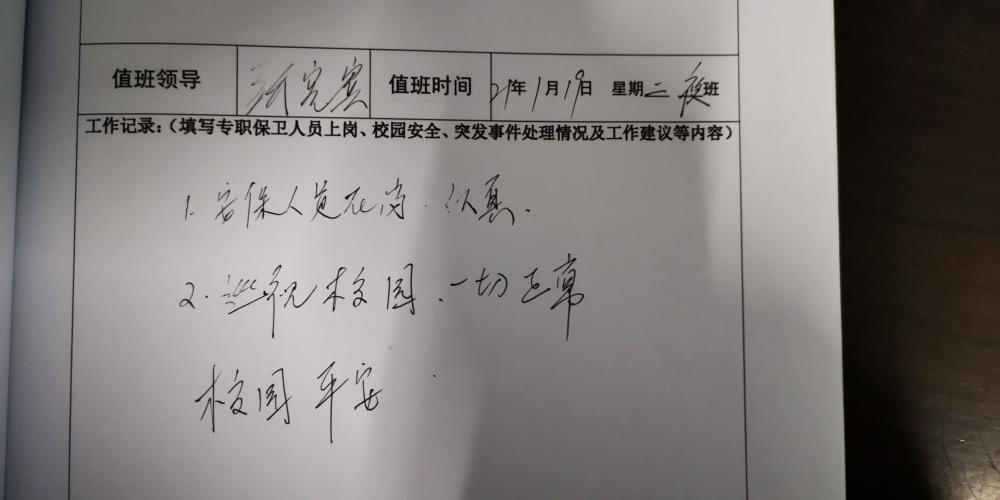 值班领导 值班时间 21年1月19日 星期二 夜班
工作记录:(填写专职保卫人员上岗、校园安全、突发事件处理情况及工作建议等内容)
1.安保人员在岗.认真.
2.巡视校园、一切正常
校园平安.